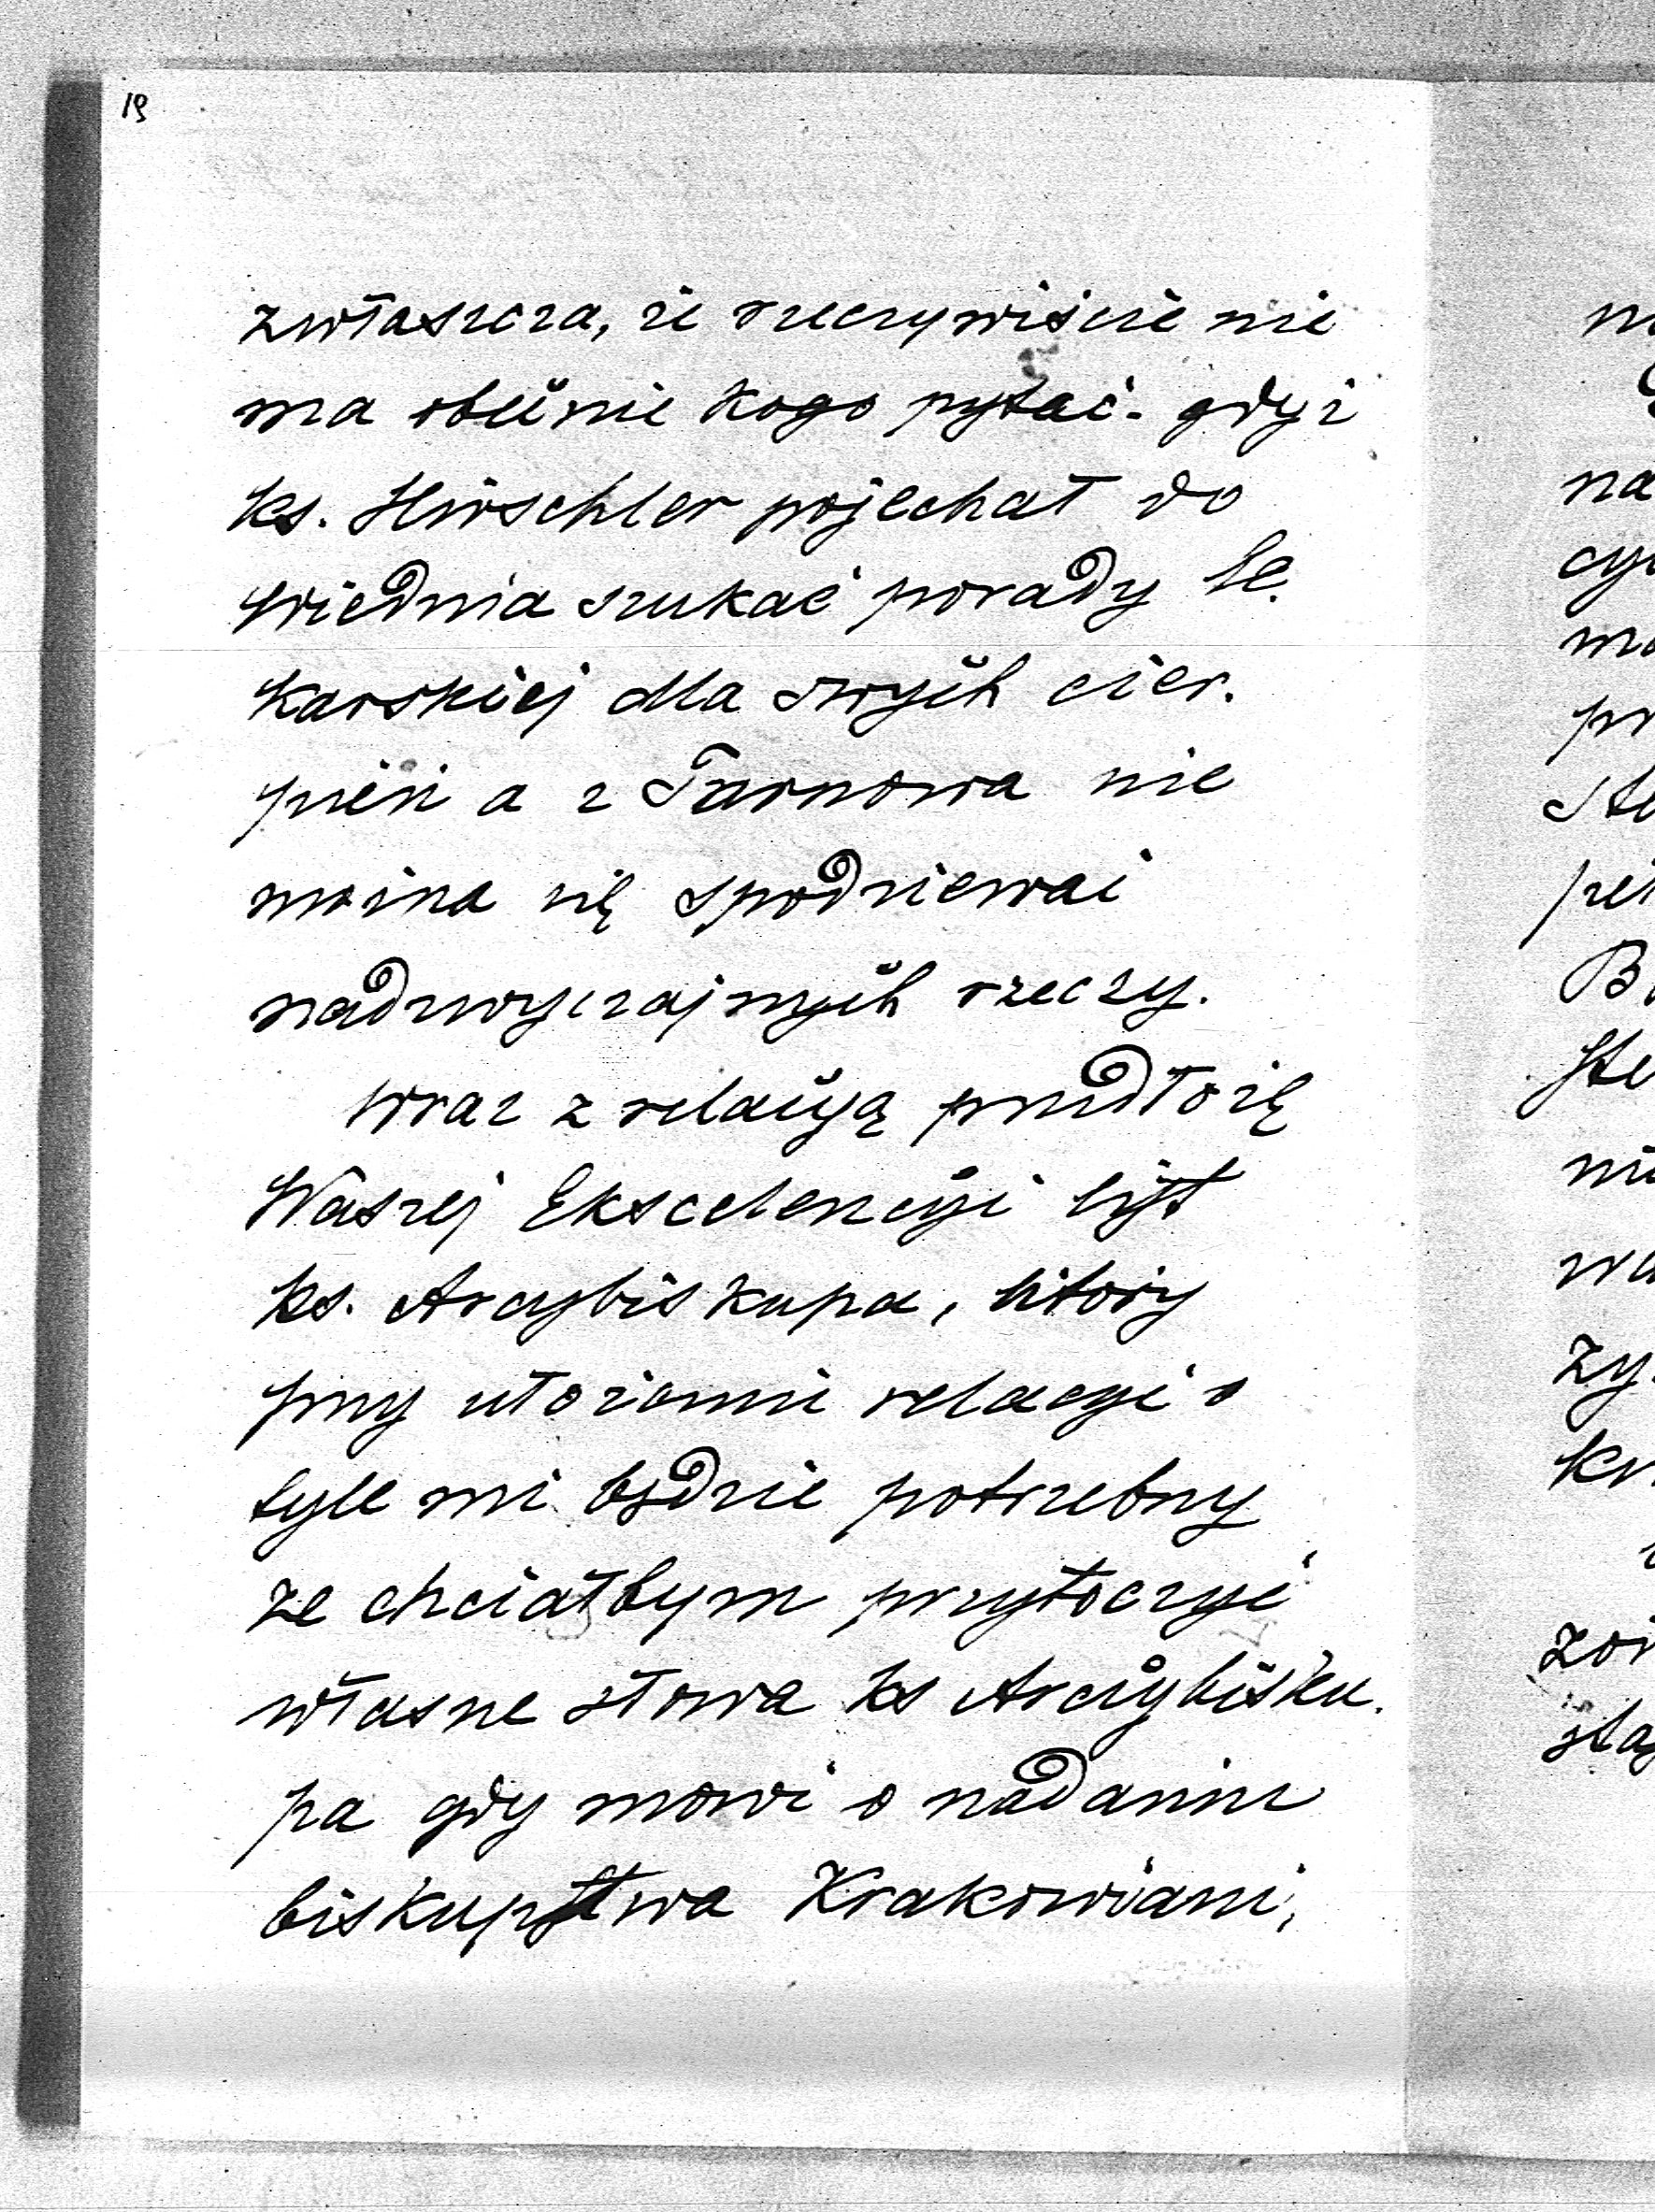 19
zwłaszcza, że rzeczywiście nie
ma obecnie kogo pytać - gdyż
ks. Hirschler pojechał do
Wiednia szukać porady le-
karskiej dla swych cier-
pień a z Tarnowa nie
można się spodziewać
nadzwyczajnych rzeczy.
Wraz z relacyą przedłożę
Waszej Ekscelencyi list
ks. Arcybiskupa, który
przy ułożeniu relacyi o
tyle mi będzie potrzebny
że chciałbym przytoczyć
własne słowa ks Arcybisku-
pa gdy mowi o nadaniu
biskupstwa Krakowiani,